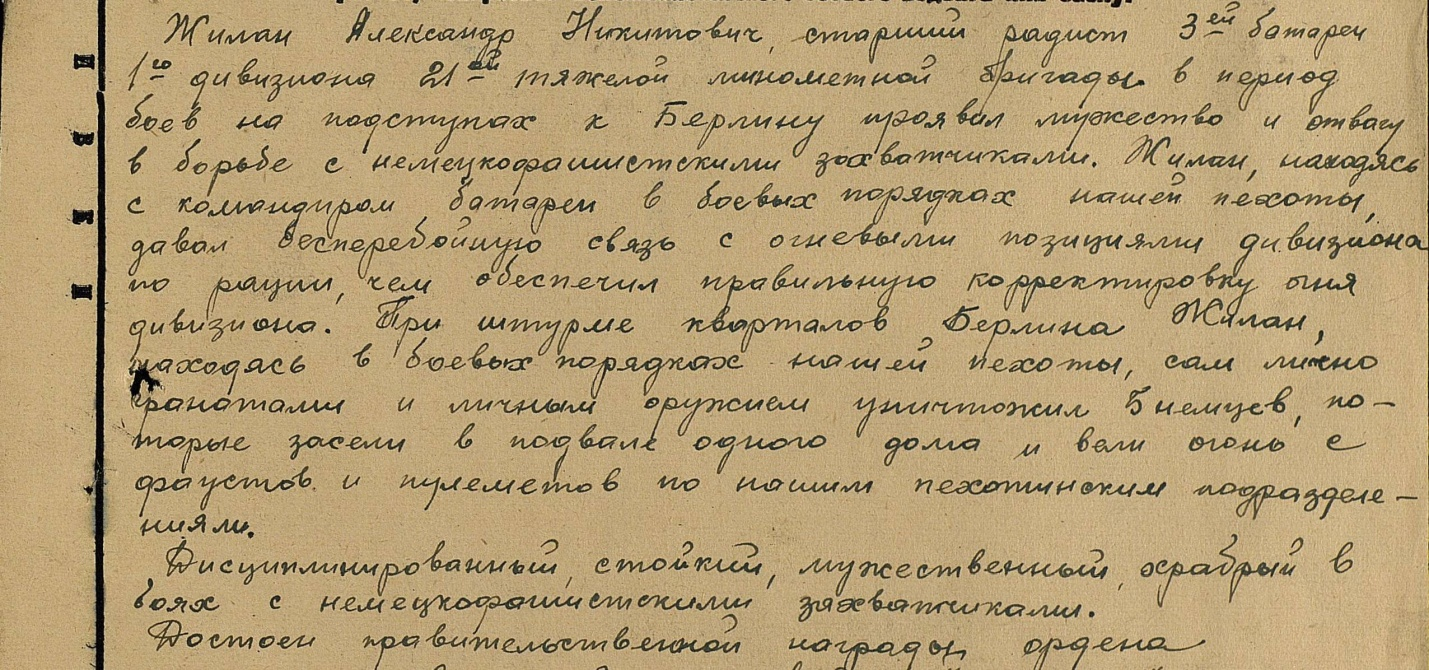 Жилан Александр Никитович, старший радист 3ей батареи
1го дивизиона 21ой тяжелой минометной бригады в период
боев на подступах к Берлину проявил мужество и отвагу
в борьбе с немецкофашистскими захватчиками. Жилан, находясь
с командиром батареи в боевых порядках нашей пехоты,
давал бесперебойную связь с огневыми позициями дивизиона
по рации, чем обеспечил правильную корректировку огня
дивизиона. При штурме кварталов Берлина Жилан,
находясь в боевых порядках нашей пехоты, сам лично
гранатами и личным оружием уничтожил 5 немцев, ко-
торые засели в подвале одного дома и вели огонь с
фаустов и пулеметов по нашим пехотинским подразделе-
ниям.
Дисциплинированный, стойкий, мужественный, храбрый в
боях с немецкофашистскими захватчиками.
Достоен правительственной награды ордена